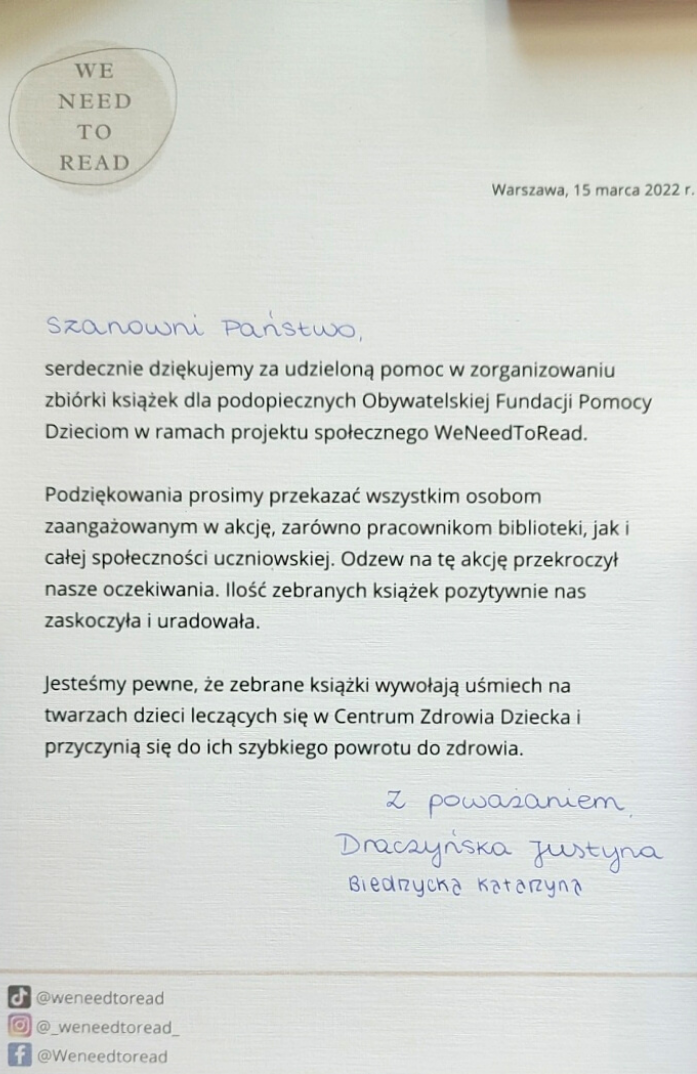 WE
NEED
TO
READ
Warszawa, 15 marca 2022 r.
Szanowni Państwo,
serdecznie dziękujemy za udzieloną pomoc w zorganizowaniu
zbiórki książek dla podopiecznych Obywatelskiej Fundacji Pomocy
Dzieciom w ramach projektu społecznego WeNeedToRead.
Podziękowania prosimy przekazać wszystkim osobom
zaangażowanym w akcję, zarówno pracownikom biblioteki, jak i
całej społeczności uczniowskiej. Odzew na tę akcję przekroczył
nasze oczekiwania. Ilość zebranych książek pozytywnie nas
zaskoczyła i uradowała.
Jesteśmy pewne, że zebrane książki wywołają uśmiech na
twarzach dzieci leczących się w Centrum Zdrowia Dziecka i
przyczynią się do ich szybkiego powrotu do zdrowia.
Z poważaniem,
Draczyńska Justyna
Biedrzycka Katarzyna
@weneedtoread
@_weneedtoread_
@Weneedtoread